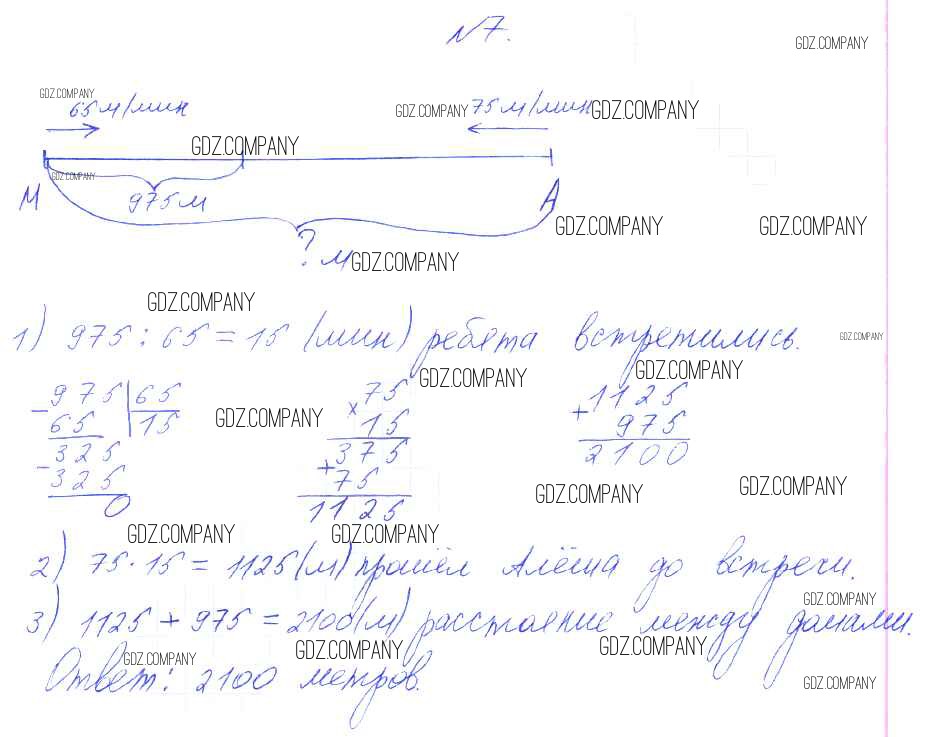 №7.
GDZ.COMPANY
GDZ.COMPANY
65 м/мин GDZ.COMPANY 75 м/мин GDZ.COMPANY
GDZ.COMPANY
GDZ.COMPANY
М 975 м А
GDZ.COMPANY GDZ.COMPANY
? м GDZ.COMPANY
GDZ.COMPANY
1) 975 : 65 = 15 (мин) ребята встретились.
GDZ.COMPANY
GDZ.COMPANY GDZ.COMPANY
- 975 | 65 75 1125
65 15 × 15 + 975
GDZ.COMPANY
325 375 2100
- 325 + 75
0 1125
GDZ.COMPANY GDZ.COMPANY
GDZ.COMPANY GDZ.COMPANY
2) 75 · 15 = 1125 (м) прошёл Алёша до встречи.
GDZ.COMPANY
3) 1125 + 975 = 2100 (м) расстояние между домами.
GDZ.COMPANY GDZ.COMPANY GDZ.COMPANY
Ответ: 2100 метров.
GDZ.COMPANY